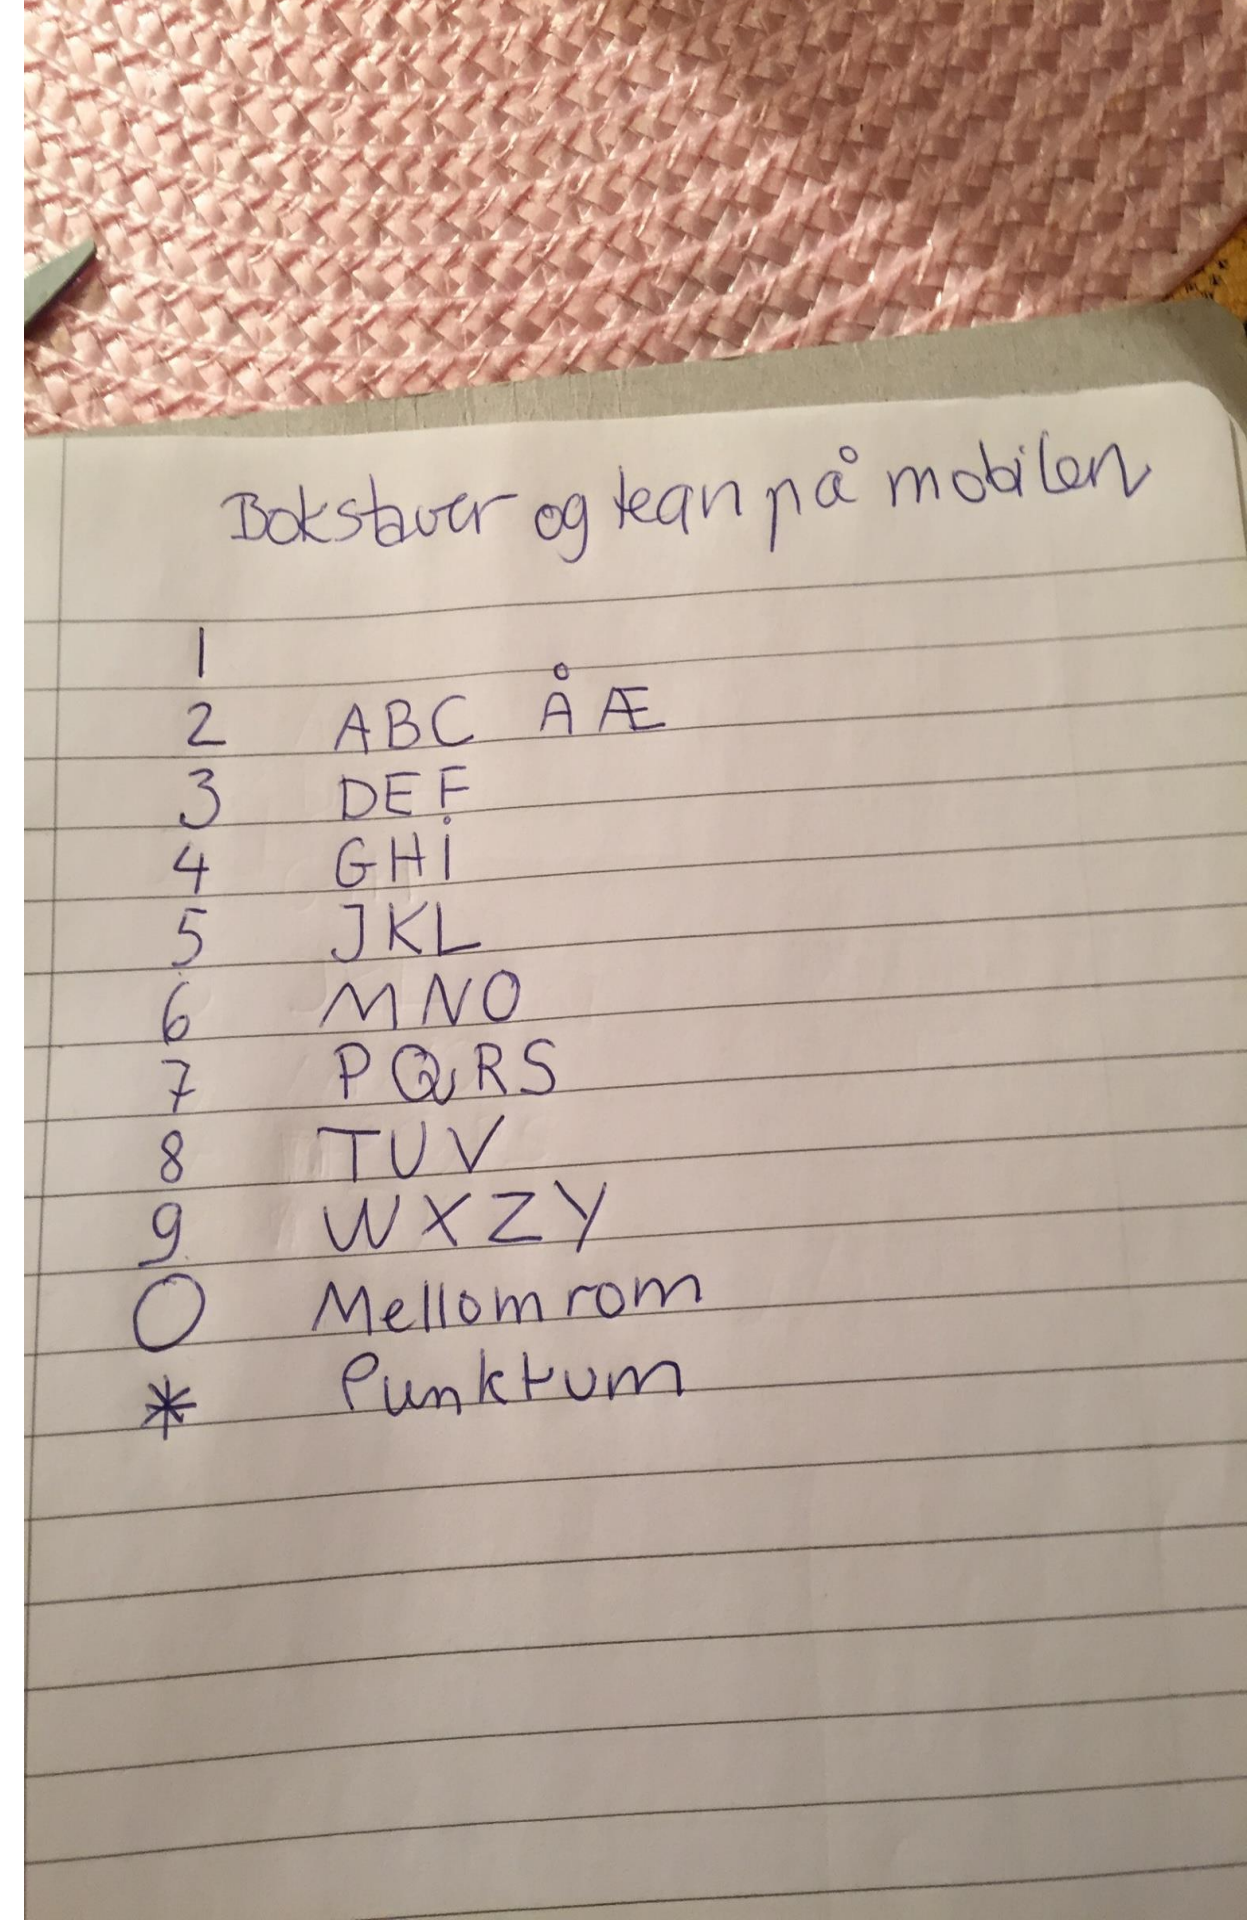 Bokstaver og tean på mobilen
1
2 ABC Å Æ
3 DEF
4 GHi
5 JKL
6 MNO
7 PQRS
8 TUV
9 WXZY
0 Mellomrom
* Punktum